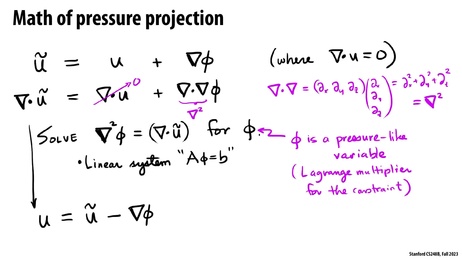 Math of pressure projection
ũ = u + ∇ϕ (where ∇·u = 0)
∇·ũ = ∇·u 0 + ∇·∇ϕ
∇²
∇·∇ = (∂ₓ ∂ᵧ ∂₂) (∂ₓ ∂ᵧ ∂₂) = ∂ₓ² + ∂ᵧ² + ∂₂² = ∇²
SOLVE ∇²ϕ = (∇·ũ) for ϕ.
• Linear system "Aϕ=b"
ϕ is a pressure-like
variable
(Lagrange multiplier
for the constraint)
u = ũ − ∇ϕ
Stanford CS248B, Fall 2023